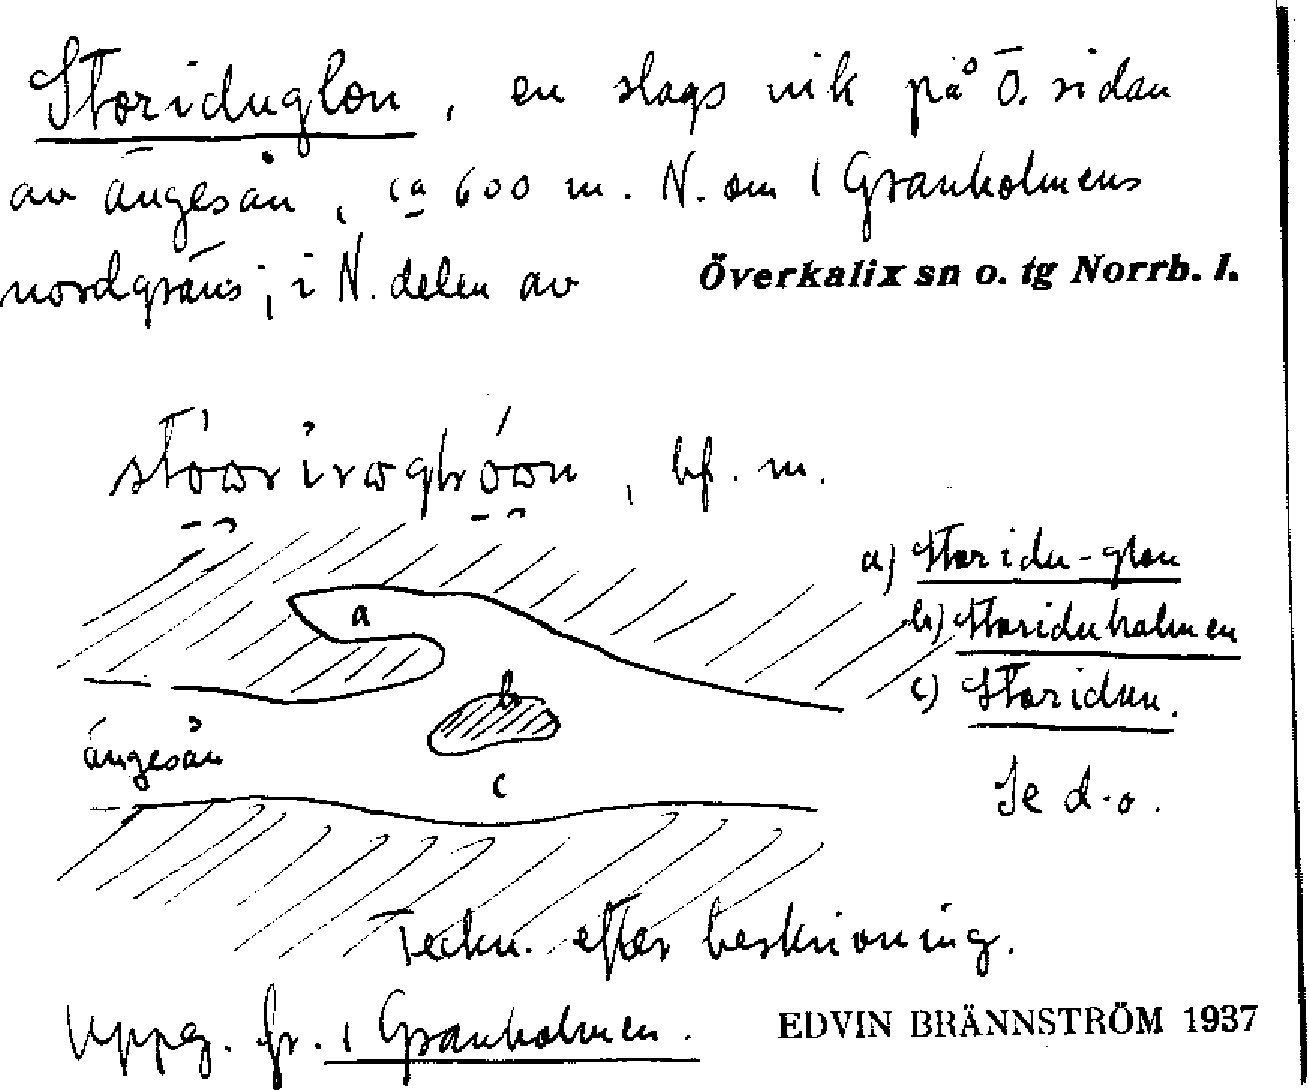 Storiduglon, en slags vik på Ö. sidan
av ängesån, ca 600 m. N. om 1 Granholmens
nordgräns; i N. delen av Överkalix sn o. tg Norrb. l.
bf. m.
a
b
ängesån
c
a) Storidu-glon
b) Storiduholmen
c) Storidun.
Se d.o.
Teckn. efter beskrivning.
Uppg. fr. 1 Granholmen.
EDVIN BRÄNNSTRÖM 1937